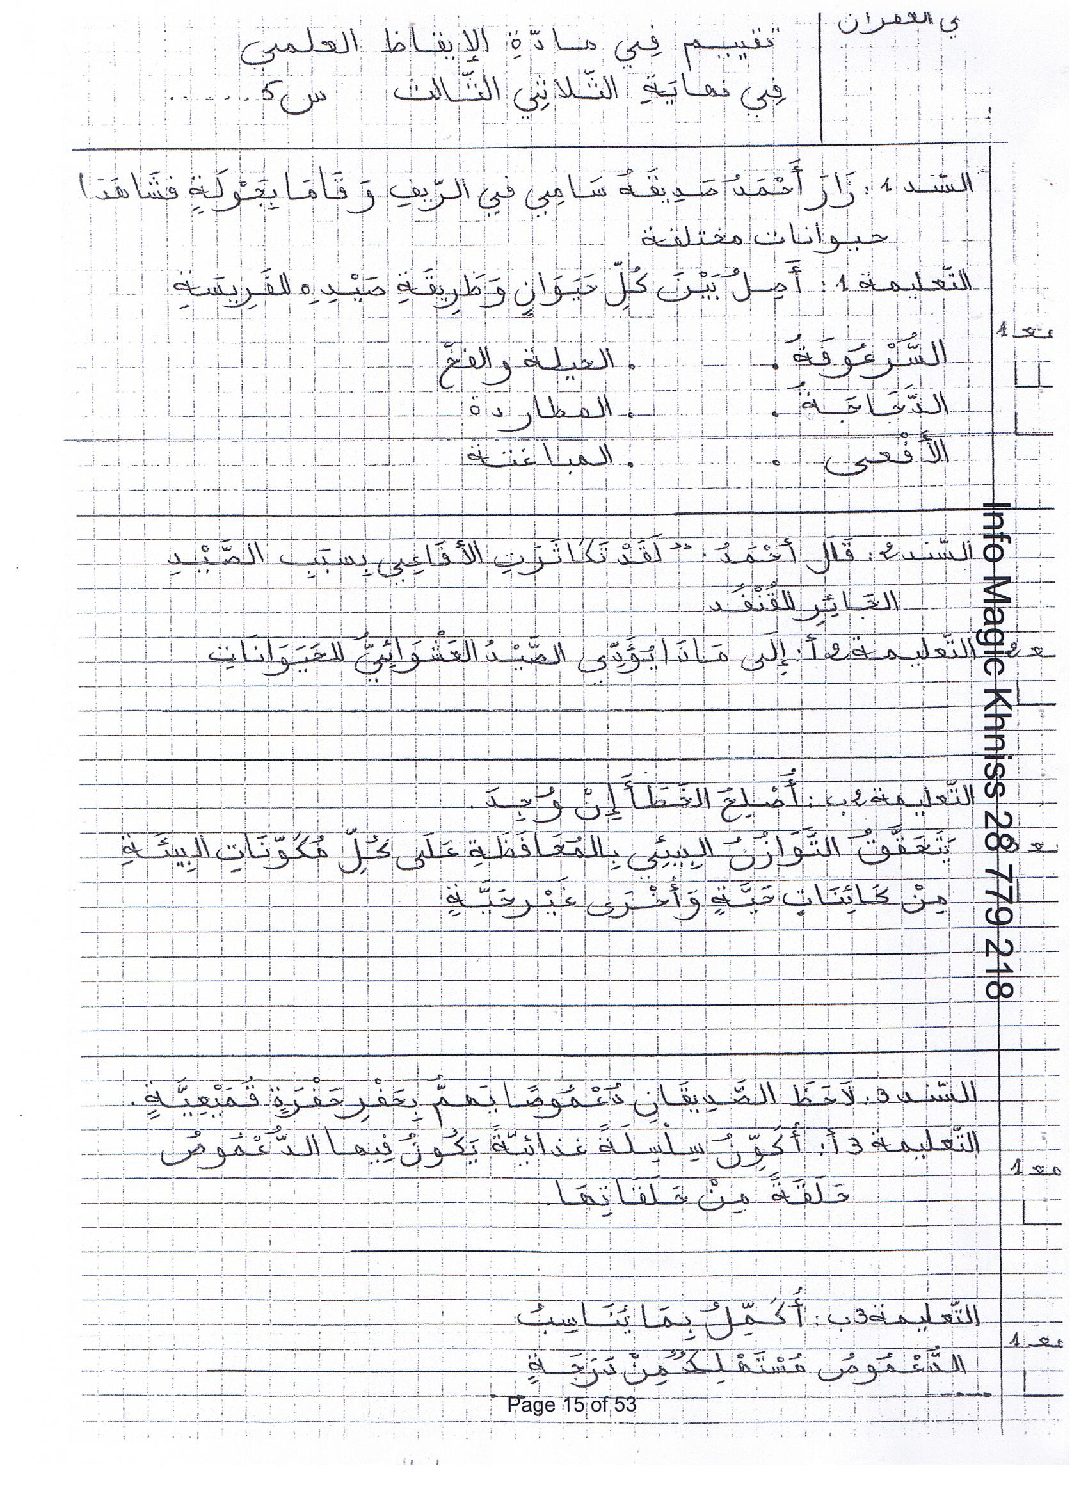 ي العمران
تقييم في مادّةِ الإيقاظ العلمي
في نهايَةِ الثّلاثيّ الثّالث س5 ......
السّند 1: زَارَ أَحْمَدُ صَدِيقَهُ سَامِي فِي الرّيفِ وَ قَامَا بِجَوْلَةٍ فشَاهَدَا
حيوانات مختلفة
التّعليمة 1: أَصِلُ بَيْنَ كُلِّ حَيَوَانٍ وَطَرِيقَةِ صَيْدِهِ للفَرِيسَةِ
مع 1
السُّرْعُوفَةُ . . الحيلة والفخّ
الدَّجَاجَةُ . . المطاردة
الأَفْعى . . المباغتة
السّند 2: قَالَ أحْمَدُ: " لَقَدْ تَكَاثَرَتِ الأفَاعِي بِسَبَبِ الصَّيْدِ
الجَائِرِ للقُنْفُد
التّعليمة 2أ: إِلَى مَاذَا يُؤَدِّي الصَّيْدُ العَشْوَائِيُّ للحَيَوَانَاتِ
مع 2
التّعليمة 2ب: أُصْلِحُ الخَطَأَ إِنْ وُجِدَ.
يَتَحَقَّقُ التَّوَازُنُ البِيئِي بِالمُحَافَظَةِ عَلَى كُلِّ مُكَوِّنَاتِ البِيئَةِ
مِنْ كَائِنَاتٍ حَيَّةٍ وَأُخْرَى غَيْرِ حَيَّةٍ
السّند 3: لَاحَظَ الصَّدِيقَانِ دُعْمُوصًا يَهمُّ بِحَفْرِ حَفْرَةٍ قُمَيْعِيَّةٍ.
التّعليمة 3أ: أُكَوِّنُ سِلْسِلَةً غذائيّةً يَكُونُ فِيهـا الدُّعْمُوصُ
حَلَقَةً مِنْ حَلَقَاتِهَا.
مع 1
التّعليمة 3ب: أُكَمِّلُ بِمَا يُنَاسِبُ
مع 1
الدُّعْمُوصُ مُسْتَهْلِكٌ مِنْ دَرَجَةٍ
Page 15 of 53
Info Magic Khniss 28 779 218